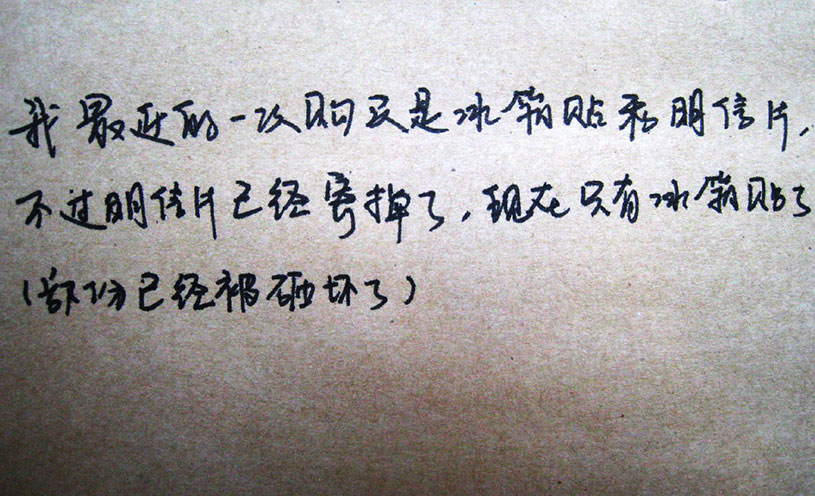 我最近的一次购买是冰箱贴和明信片，
不过明信片已经寄掉了，现在只有冰箱贴了
（部份已经被砸坏了）